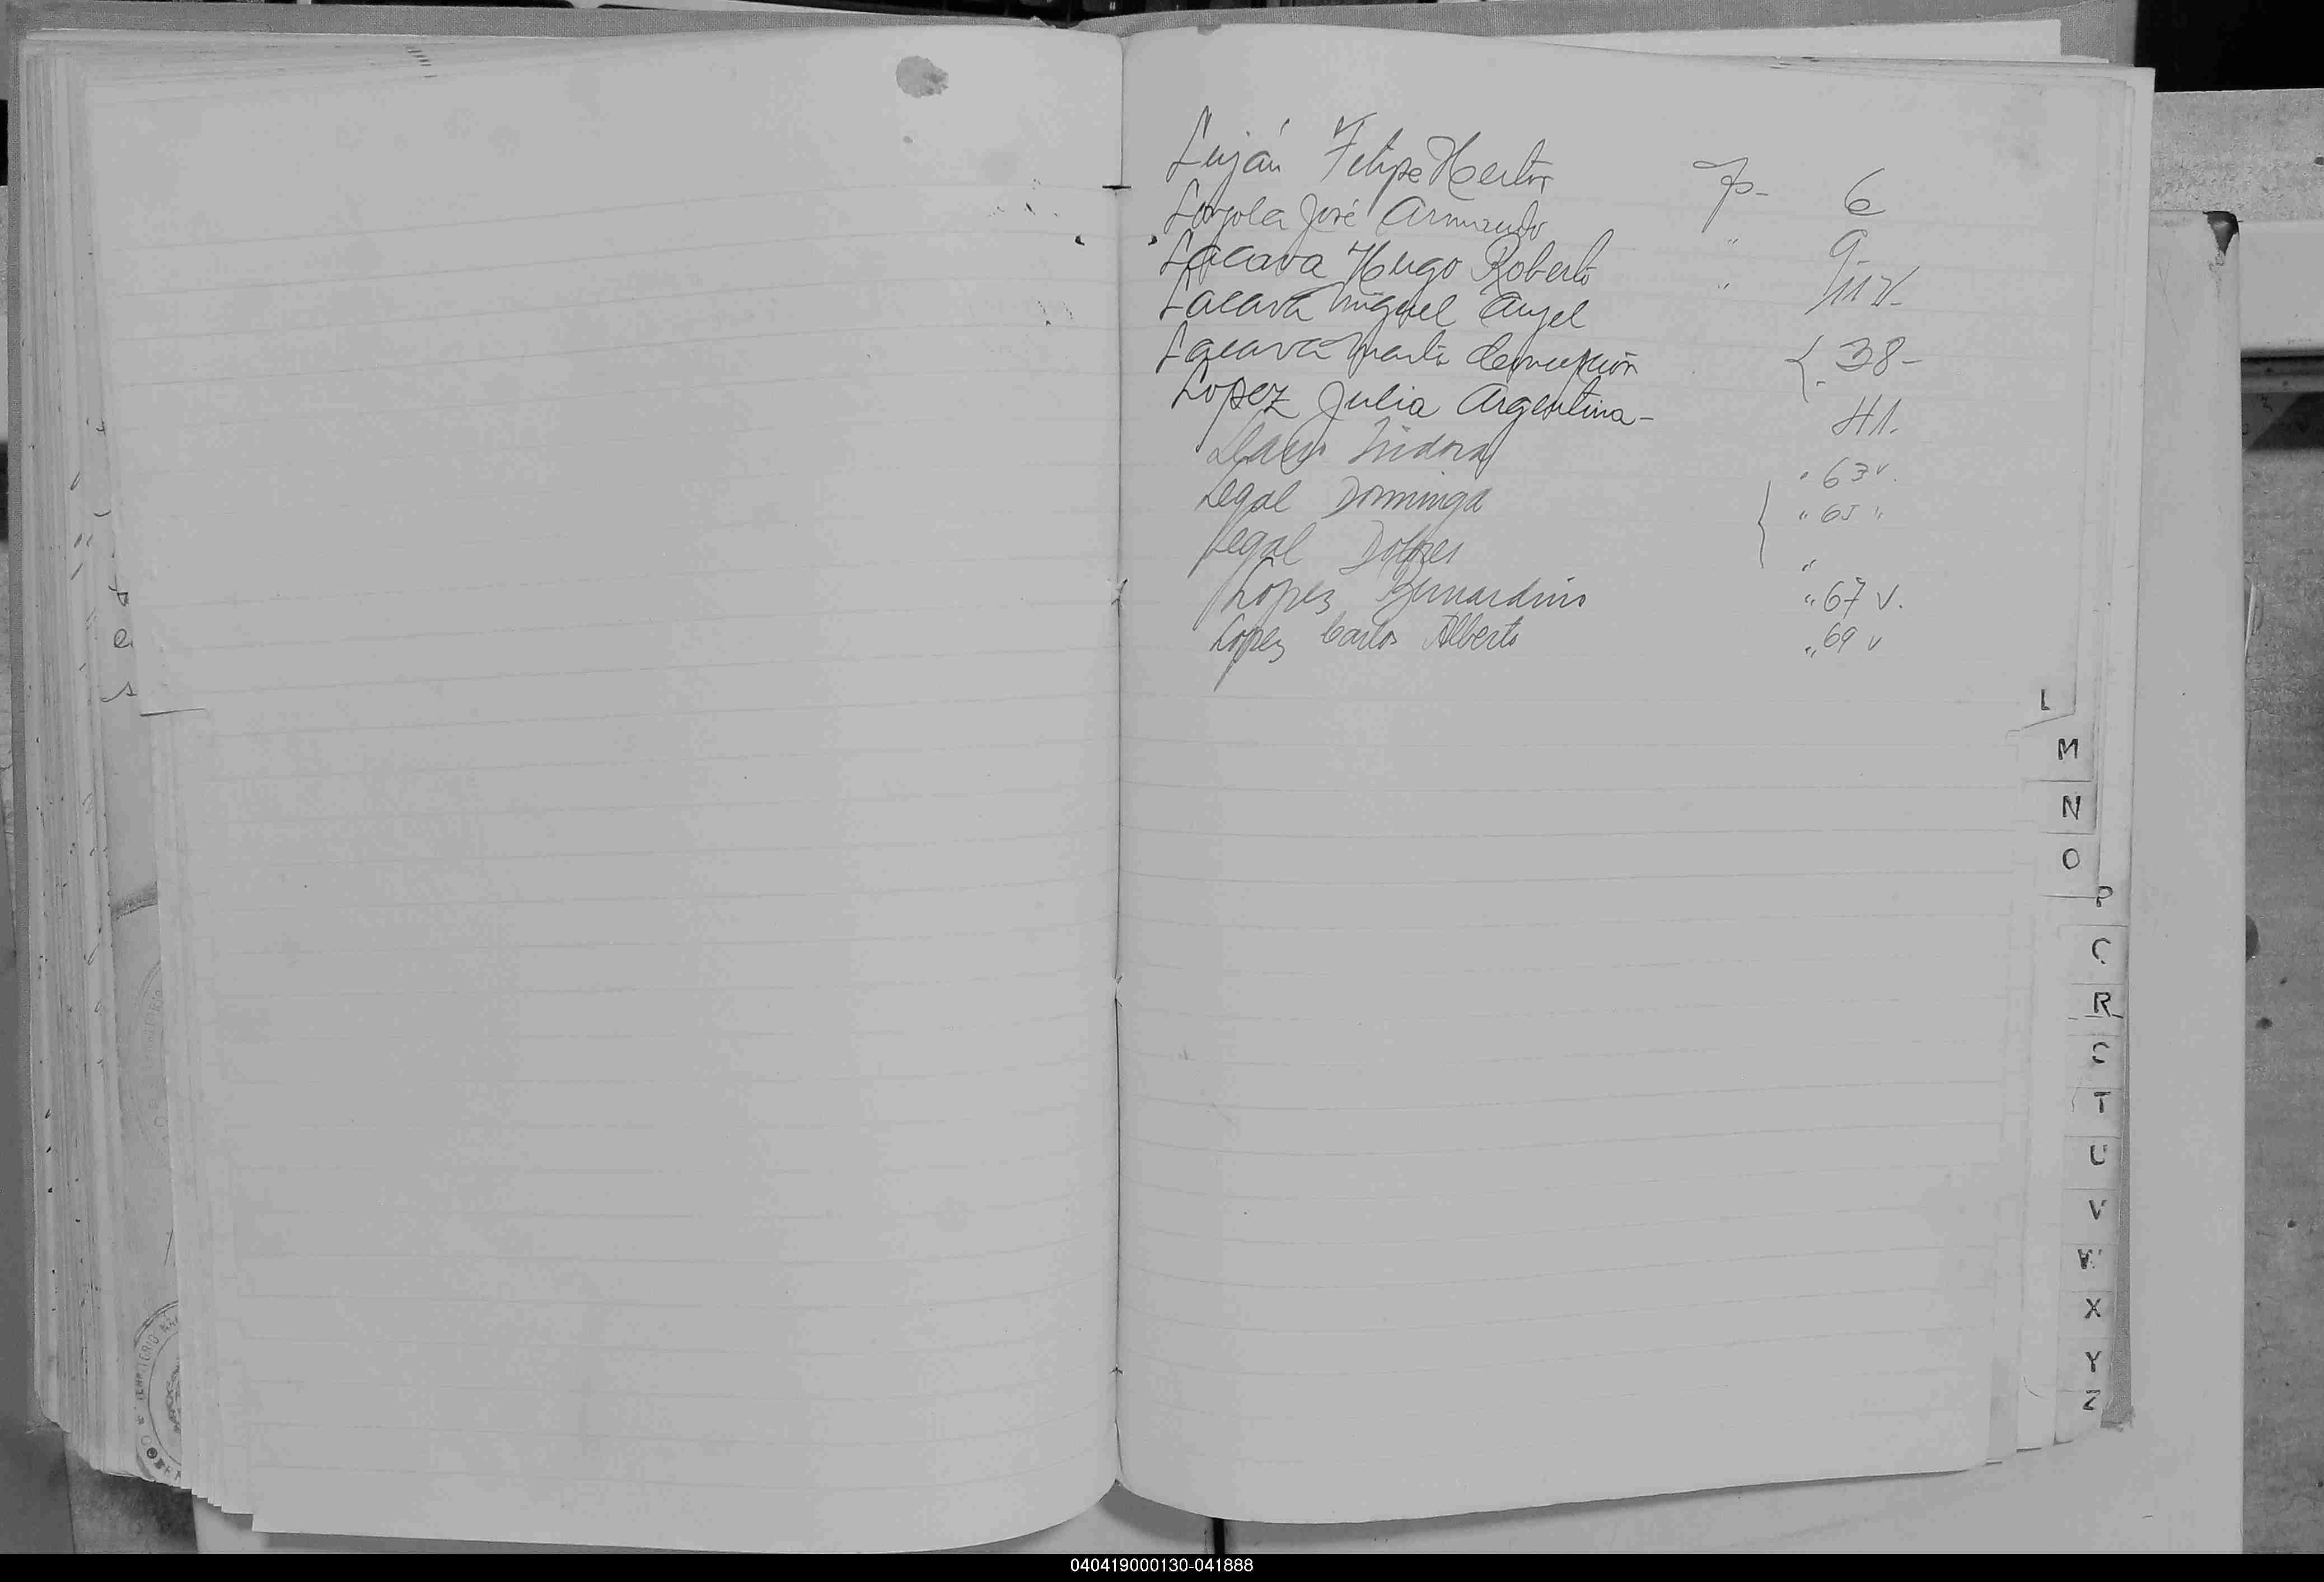 Luján Felipe Hector fs- 6
Loyola José Armando " 9-
Lacava Hugo Roberto "
Lacava Miguel Angel
Lacava Marta Concepción 38-
Lopez Julia Argentina- 41.
Isidora " 63 v.
Legal Dominga " 65 "
Legal Dolores "
Lopez Bernardino " 67 v.
Lopez Carlos Alberto " 69 v
L
M
N
O
P
R
S
T
U
V
W
X
Y
Z
040419000130-041888